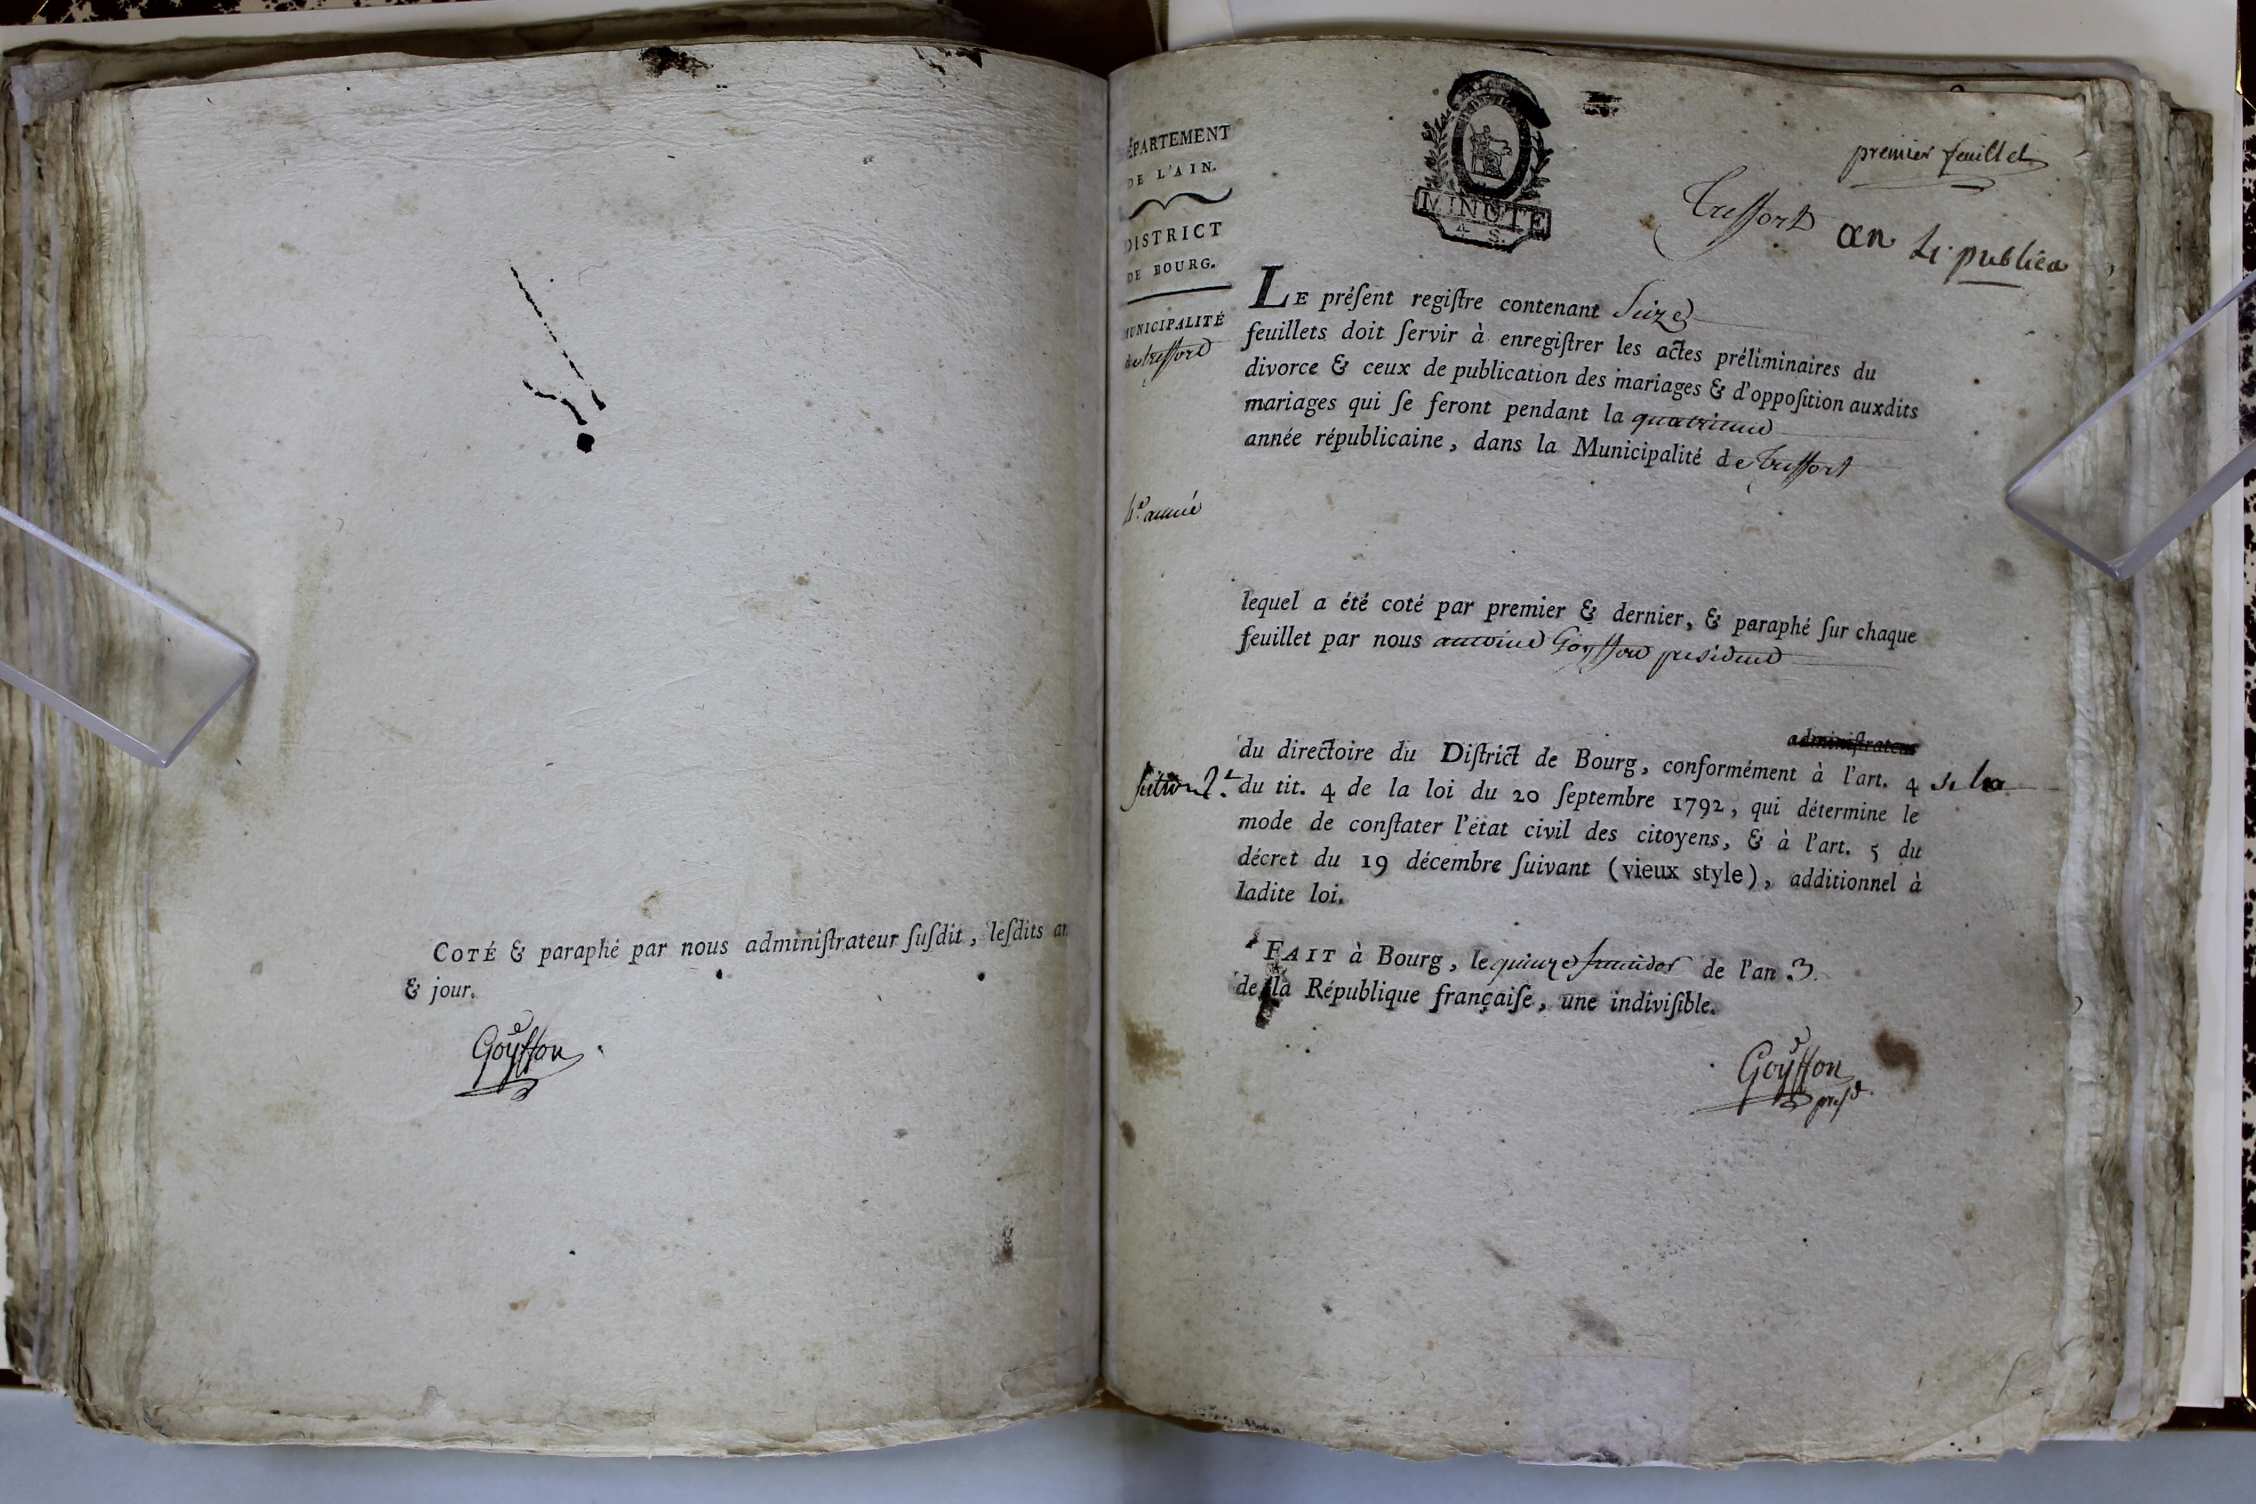 COTÉ & paraphé par nous adminiſtrateur ſuſdit, leſdits an
& jour.
Goyffon
ÉPARTEMENT
DE L'AIN.
DISTRICT
DE BOURG.
MUNICIPALITÉ
de treffort
4.e année
MINUTE
4 S.
premier feuillet
Treffort an 4. publica
LE préſent regiſtre contenant Seize
feuillets doit ſervir à enregiſtrer les actes préliminaires du
divorce & ceux de publication des mariages & d'oppoſition auxdits
mariages qui ſe feront pendant la quatrieme
année républicaine, dans la Municipalité de treffort
lequel a été coté par premier & dernier, & paraphé ſur chaque
feuillet par nous antoine Goyffon president
adminiſtrateur
du directoire du Diſtrict de Bourg, conformément à l'art. 4 de la
du tit. 4 de la loi du 20 ſeptembre 1792, qui détermine le
mode de conſtater l'état civil des citoyens, & à l'art. 5 du
décret du 19 décembre ſuivant (vieux style), additionnel à
ladite loi.
FAIT à Bourg, le quinze de l'an 3.
de la République françaiſe, une indiviſible.
Goyffon
presd.